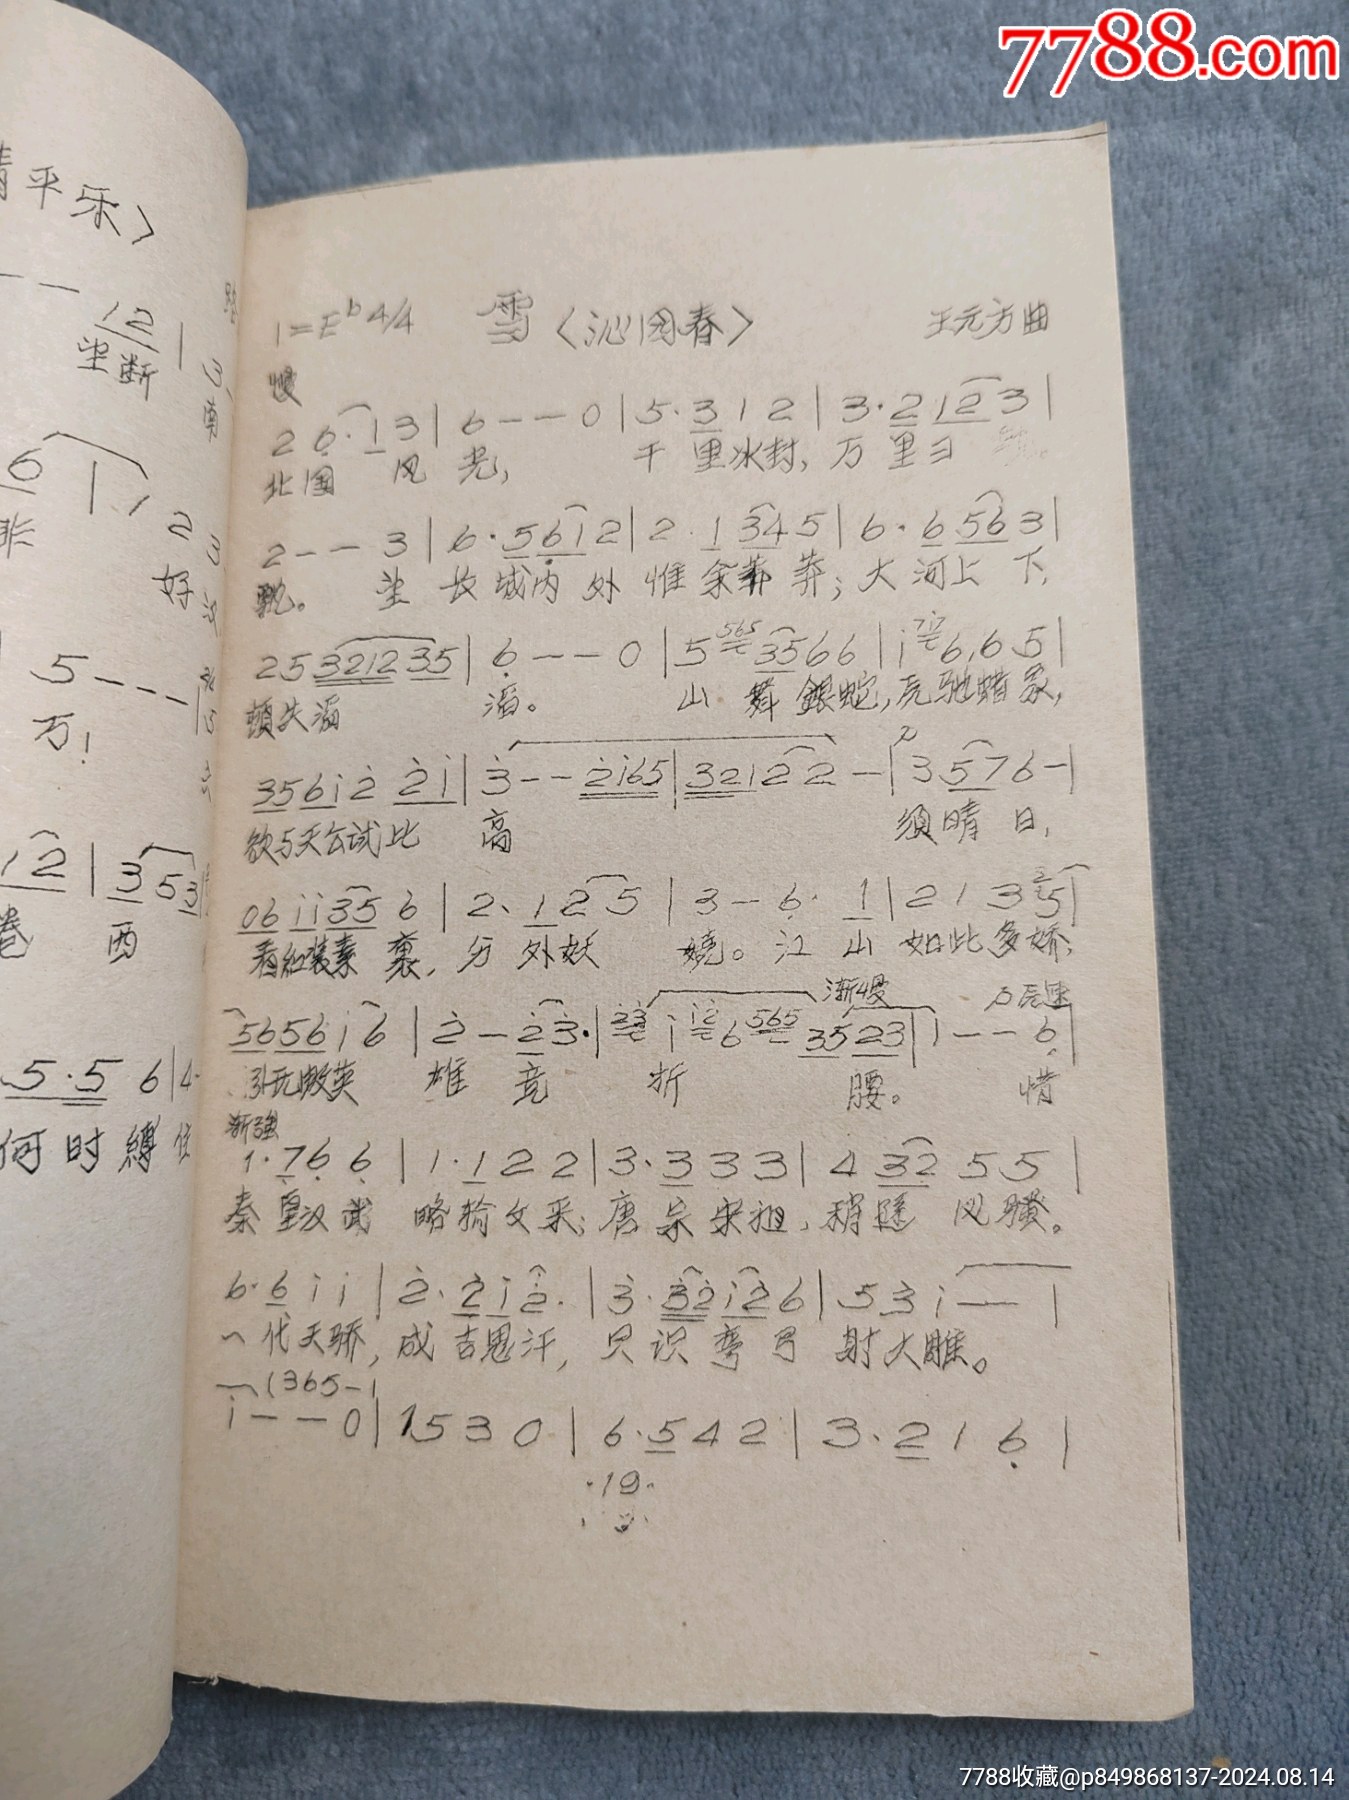 7788.com
清平乐〉
— —
12 |
望断
6 1 1 2
非 好
5 - - - |
万!
12 | 3 5 3
卷 西
5·5 6 | 4
何时縛住
1=E♭4/4 雪〈沁园春〉 王元方曲
慢
2 6·1 3 | 6 - - 0 | 5·3 1 2 | 3·2 12 3 |
北国 风 光, 千里冰封, 万里
2 - - 3 | 6·5 61 2 | 2·1 34 5 | 6·6 56 3 |
飘。 望 长城内外 惟余莽莽; 大河上下,
2 5 3212 35 | 6 - - 0 | 5 565 35 6 6 | i 7i 6 6 5 |
頓失滔 滔。 山 舞銀蛇, 元驰蜡象,
35 6i 2 2i | 3 - - 2i65 | 3212 2 - | 3 57 6 - |
欲与天公试比 高 须晴 日,
06 ii 35 6 | 2·1 2 5 | 3 - 6·1 | 2 1 3 2 5 |
看红装素裹, 分外妖 娆。江山 如此多娇,
渐慢 万元速
56 56 i 6 | 2 - 2 3· | 23 i i2 6 565 35 23 | 1 - - 6 |
引无数英 雄 竞 折 腰。 惜
渐強
1·76 6 | 1·1 2 2 | 3·3 3 3 | 4 32 5 5 |
秦皇汉武 略输文采; 唐宗宋祖, 稍逊 风骚。
6·6 i i | 2·2 i 2· | 3·32 i2 6 | 5 3 i - - |
一代天骄, 成吉思汗, 只识弯弓 射大雕。
(365-
i - - 0 | 15 3 0 | 6·5 4 2 | 3·2 1 6 |
·19·
7788收藏@p849868137-2024.08.14